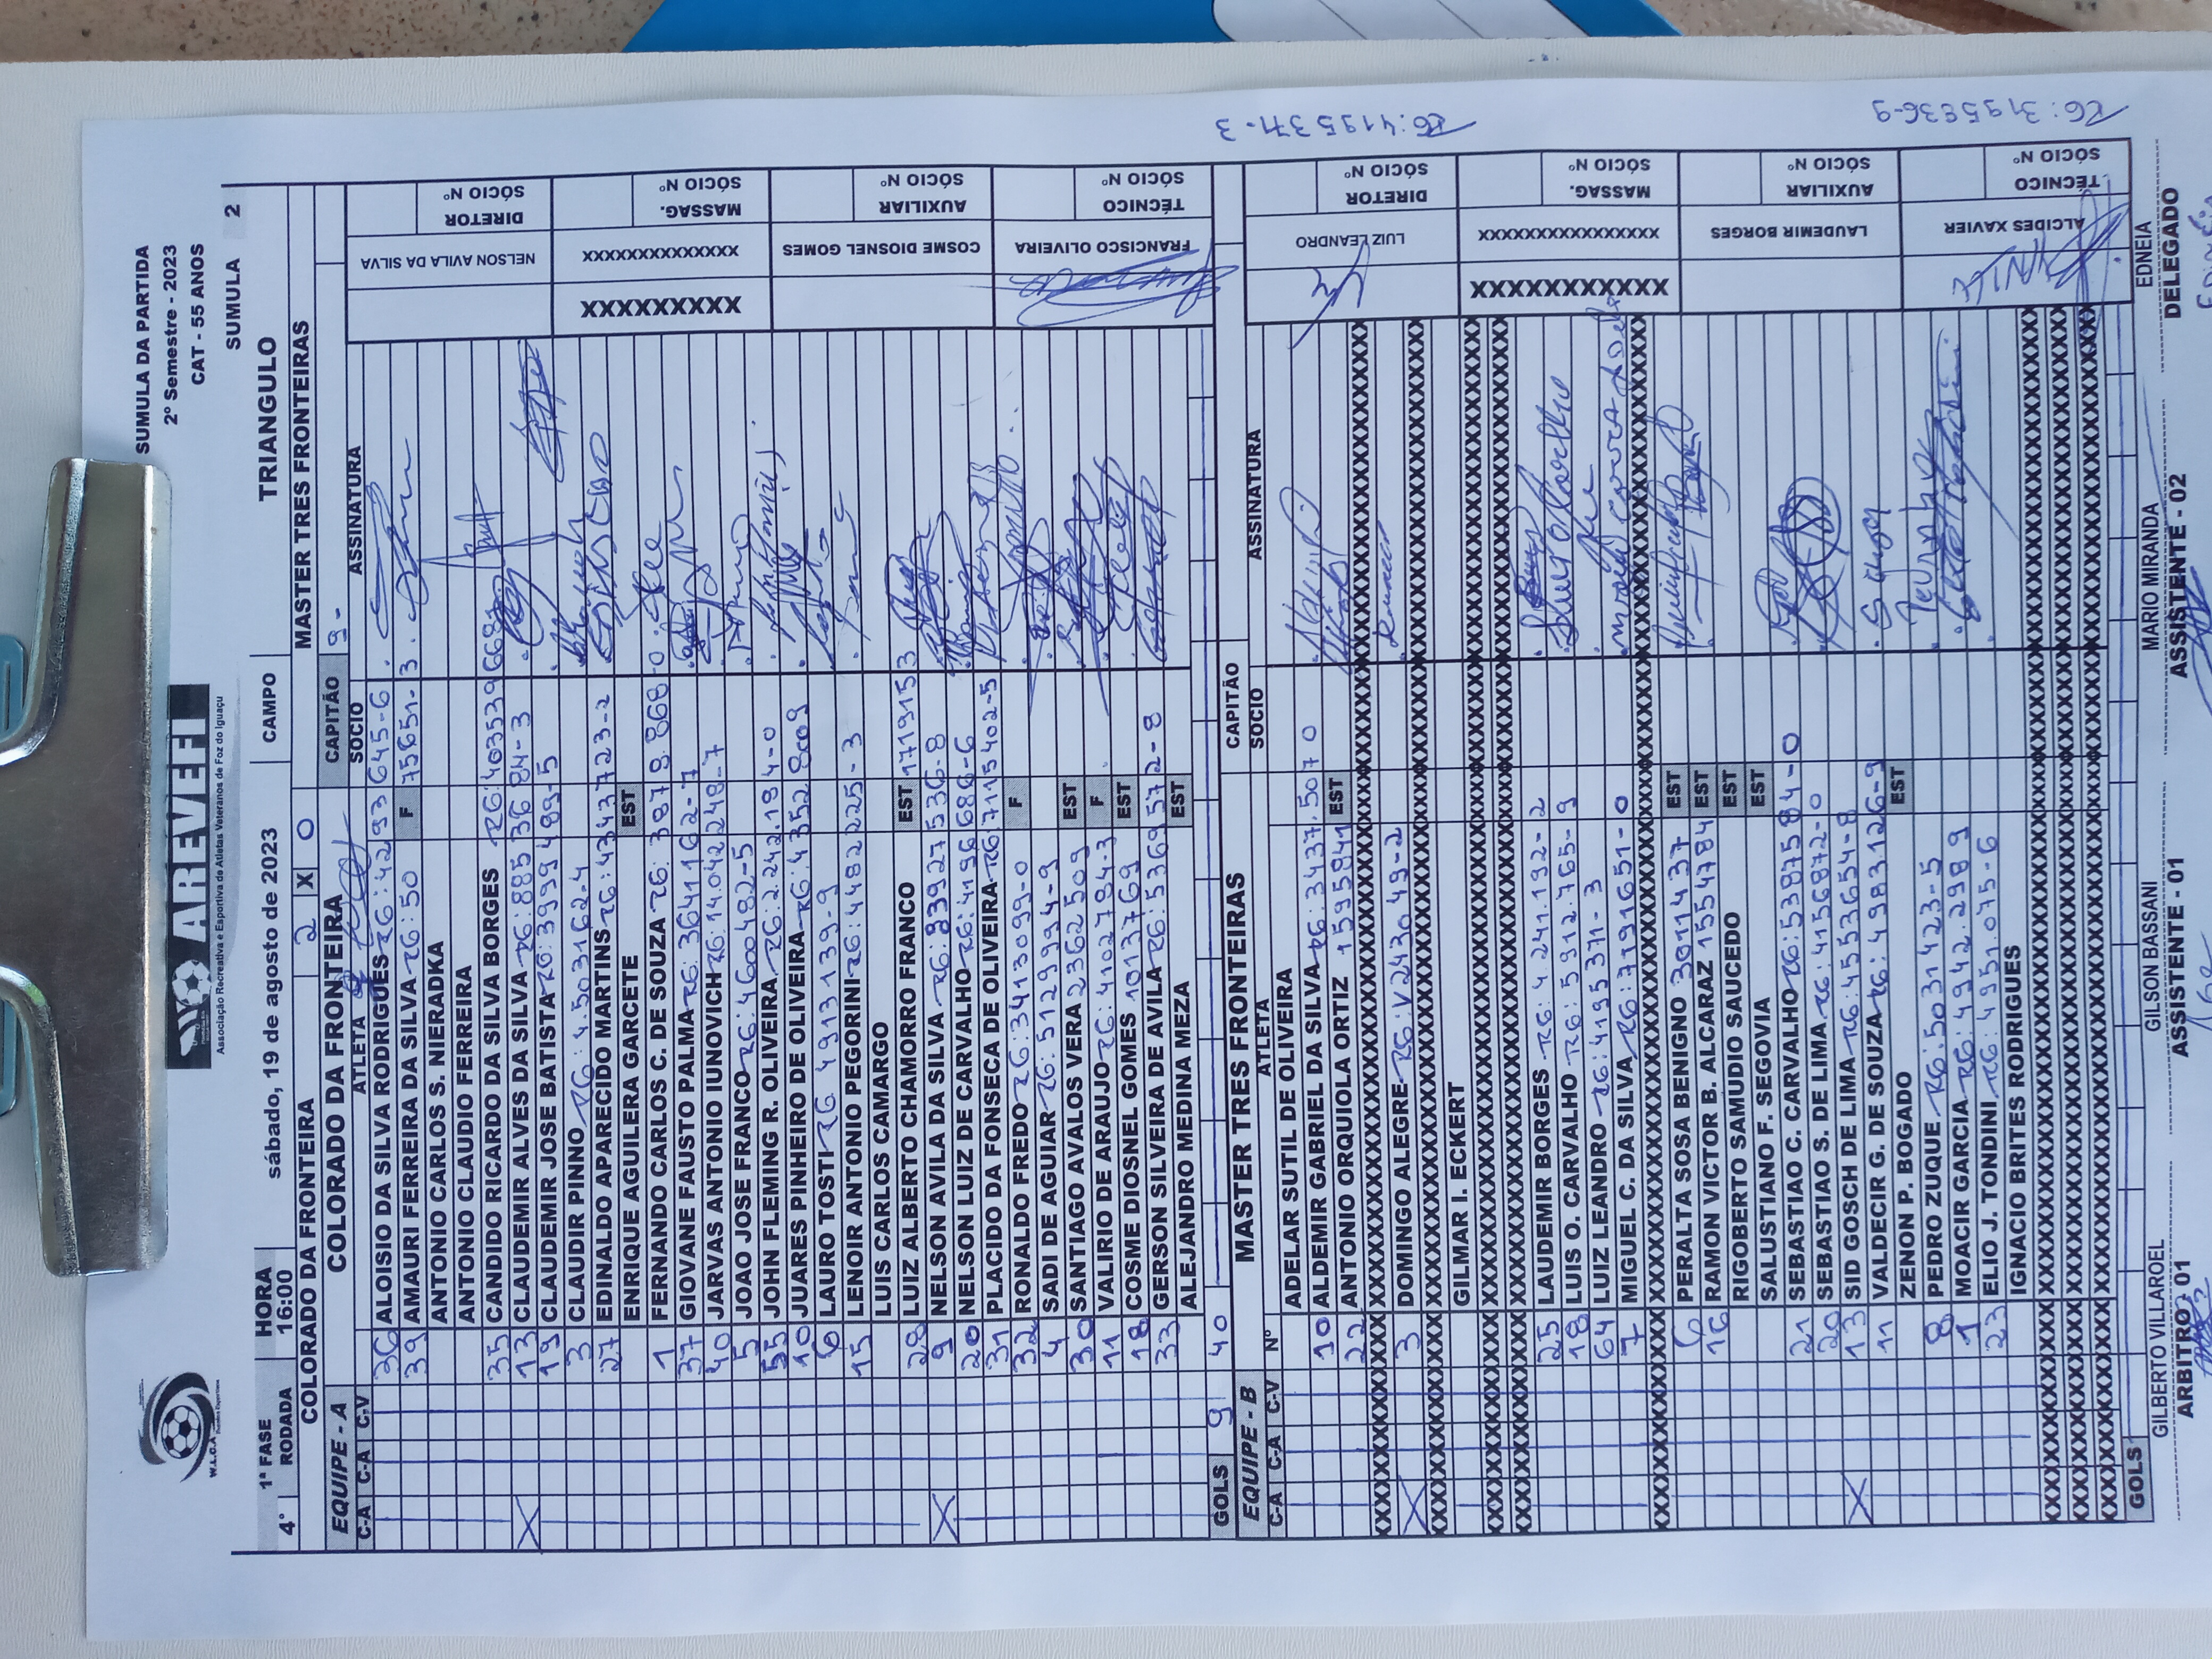 W.L.C.A
AREVEFI
Associação Recreativa e Esportiva de Atletas Veteranos de Foz do Iguaçu
SUMULA DA PARTIDA
2º Semestre - 2023
CAT - 55 ANOS
SUMULA 2
1ª FASE HORA sábado, 19 de agosto de 2023 CAMPO TRIANGULO
4ª RODADA 16:00
COLORADO DA FRONTEIRA 2 X 0 MASTER TRES FRONTEIRAS
EQUIPE - A COLORADO DA FRONTEIRA CAPITÃO 9-
C-A C-A C-V ATLETA SOCIO ASSINATURA
36 ALOISIO DA SILVA RODRIGUES RG:4293645-6
39 AMAURI FERREIRA DA SILVA RG:50 F 75651-3
ANTONIO CARLOS S. NIERADKA
ANTONIO CLAUDIO FERREIRA
35 CANDIDO RICARDO DA SILVA BORGES RG:403539668
X 13 CLAUDEMIR ALVES DA SILVA RG:8853684-3
19 CLAUDEMIR JOSE BATISTA RG:3999489-5
3 CLAUDIR PINNO RG:4.503162-4
27 EDINALDO APARECIDO MARTINS RG:4343723-2
ENRIQUE AGUILERA GARCETE EST
1 FERNANDO CARLOS C. DE SOUZA RG:3878.868-0
37 GIOVANE FAUSTO PALMA RG:3641162-7
40 JARVAS ANTONIO IUNOVICH RG:14.042248-7
5 JOAO JOSE FRANCO RG:4600482-5
55 JOHN FLEMING R. OLIVEIRA RG:2.242.184-0
10 JUARES PINHEIRO DE OLIVEIRA RG:4.3528009
6 LAURO TOSTI RG 4913139-9
15 LENOIR ANTONIO PEGORINI RG:4482225-3
LUIS CARLOS CAMARGO
28 LUIZ ALBERTO CHAMORRO FRANCO EST 1719153
X 9 NELSON AVILA DA SILVA RG:83927536-8
20 NELSON LUIZ DE CARVALHO RG:4196686-6
31 PLACIDO DA FONSECA DE OLIVEIRA RG:7115402-5
32 RONALDO FREDO RG:3413099-0 F
4 SADI DE AGUIAR RG:5129994-9
30 SANTIAGO AVALOS VERA 2362509 EST
11 VALIRIO DE ARAUJO RG:4102784-3 F
18 COSME DIOSNEL GOMES 1013769 EST
33 GERSON SILVEIRA DE AVILA RG:5369572-8
ALEJANDRO MEDINA MEZA EST
GOLS 9 40
NELSON AVILA DA SILVA DIRETOR SÓCIO Nº
XXXXXXXXX XXXXXXXXXXXXXX MASSAG. SÓCIO Nº
COSME DIOSNEL GOMES AUXILIAR SÓCIO Nº
FRANCISCO OLIVEIRA TÉCNICO SÓCIO Nº
EQUIPE - B MASTER TRES FRONTEIRAS CAPITÃO
C-A C-A C-V Nº ATLETA SOCIO ASSINATURA
ADELAR SUTIL DE OLIVEIRA
10 ALDEMIR GABRIEL DA SILVA RG:3437.507 0
22 ANTONIO ORQUIOLA ORTIZ 1595841 EST
X 3 DOMINGO ALEGRE RG:V243049-2
GILMAR I. ECKERT
25 LAUDEMIR BORGES RG:4.241.192-2
18 LUIS O. CARVALHO RG:5912.765-9
64 LUIZ LEANDRO RG:4195371-3
7 MIGUEL C. DA SILVA RG:7191651-0
6 PERALTA SOSA BENIGNO 3011437 EST
16 RAMON VICTOR B. ALCARAZ 1554784 EST
RIGOBERTO SAMUDIO SAUCEDO EST
SALUSTIANO F. SEGOVIA EST
21 SEBASTIAO C. CARVALHO RG:5387584-0
20 SEBASTIAO S. DE LIMA RG:4156872-0
X 13 SID GOSCH DE LIMA RG:4553654-8
11 VALDECIR G. DE SOUZA RG:4983126-9
ZENON P. BOGADO EST
8 PEDRO ZUQUE RG:5031423-5
1 MOACIR GARCIA RG:4942.2989
23 ELIO J. TONDINI RG:4951.075-6
IGNACIO BRITES RODRIGUES
GOLS
LUIZ LEANDRO DIRETOR SÓCIO Nº RG:4195371-3
XXXXXXXXXXX XXXXXXXXXXXXXXXX MASSAG. SÓCIO Nº
LAUDEMIR BORGES AUXILIAR SÓCIO Nº
ALCIDES XAVIER TÉCNICO SÓCIO Nº RG:3195836-9
GILBERTO VILLAROEL GILSON BASSANI MARIO MIRANDA EDNEIA
ARBITRO 01 ASSISTENTE - 01 ASSISTENTE - 02 DELEGADO